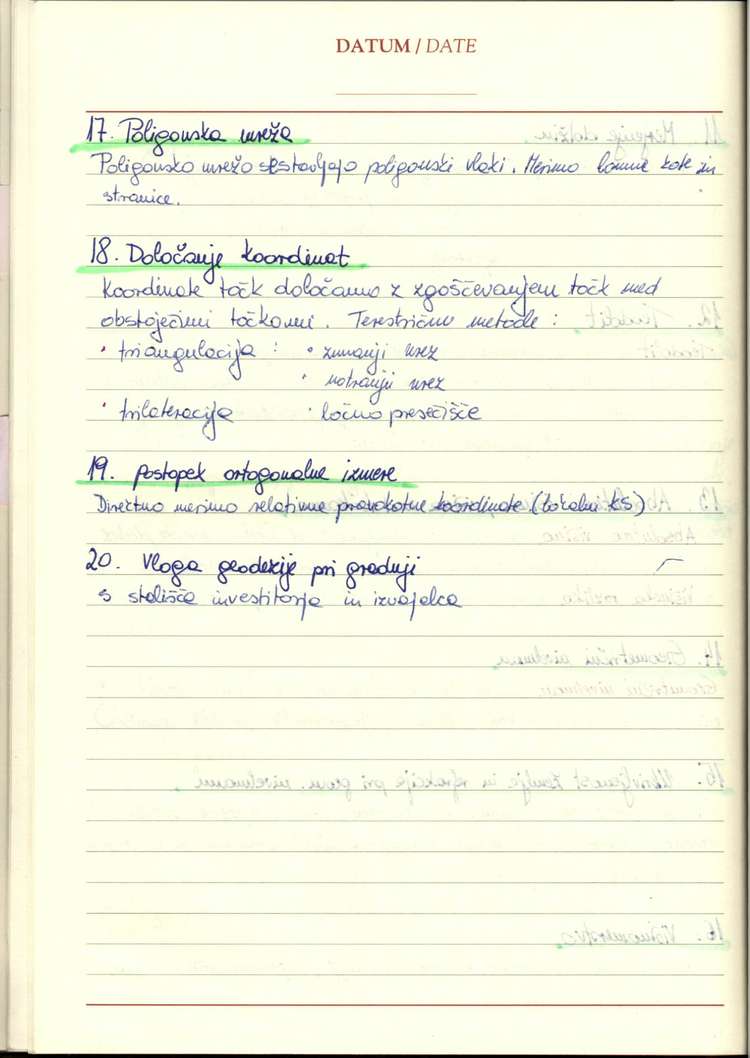 DATUM / DATE
17. Poligonska mreža
Poligonsko mrežo sestavljajo poligonski vlaki. Merimo lomne kote in
stranice.
18. Določanje koordinat
Koordinate točk določamo z zgoščevanjem točk med
obstoječimi točkami. Terestrične metode:
• triangulacija : • zunanji urez
• notranji urez
• trilateracija • ločno presečišče
19. postopek ortogonalne izmere
Direktno merimo relativne pravokotne koordinate (lokalni KS)
20. Vloga geodezije pri gradnji
s stališča investitorja in izvajalca